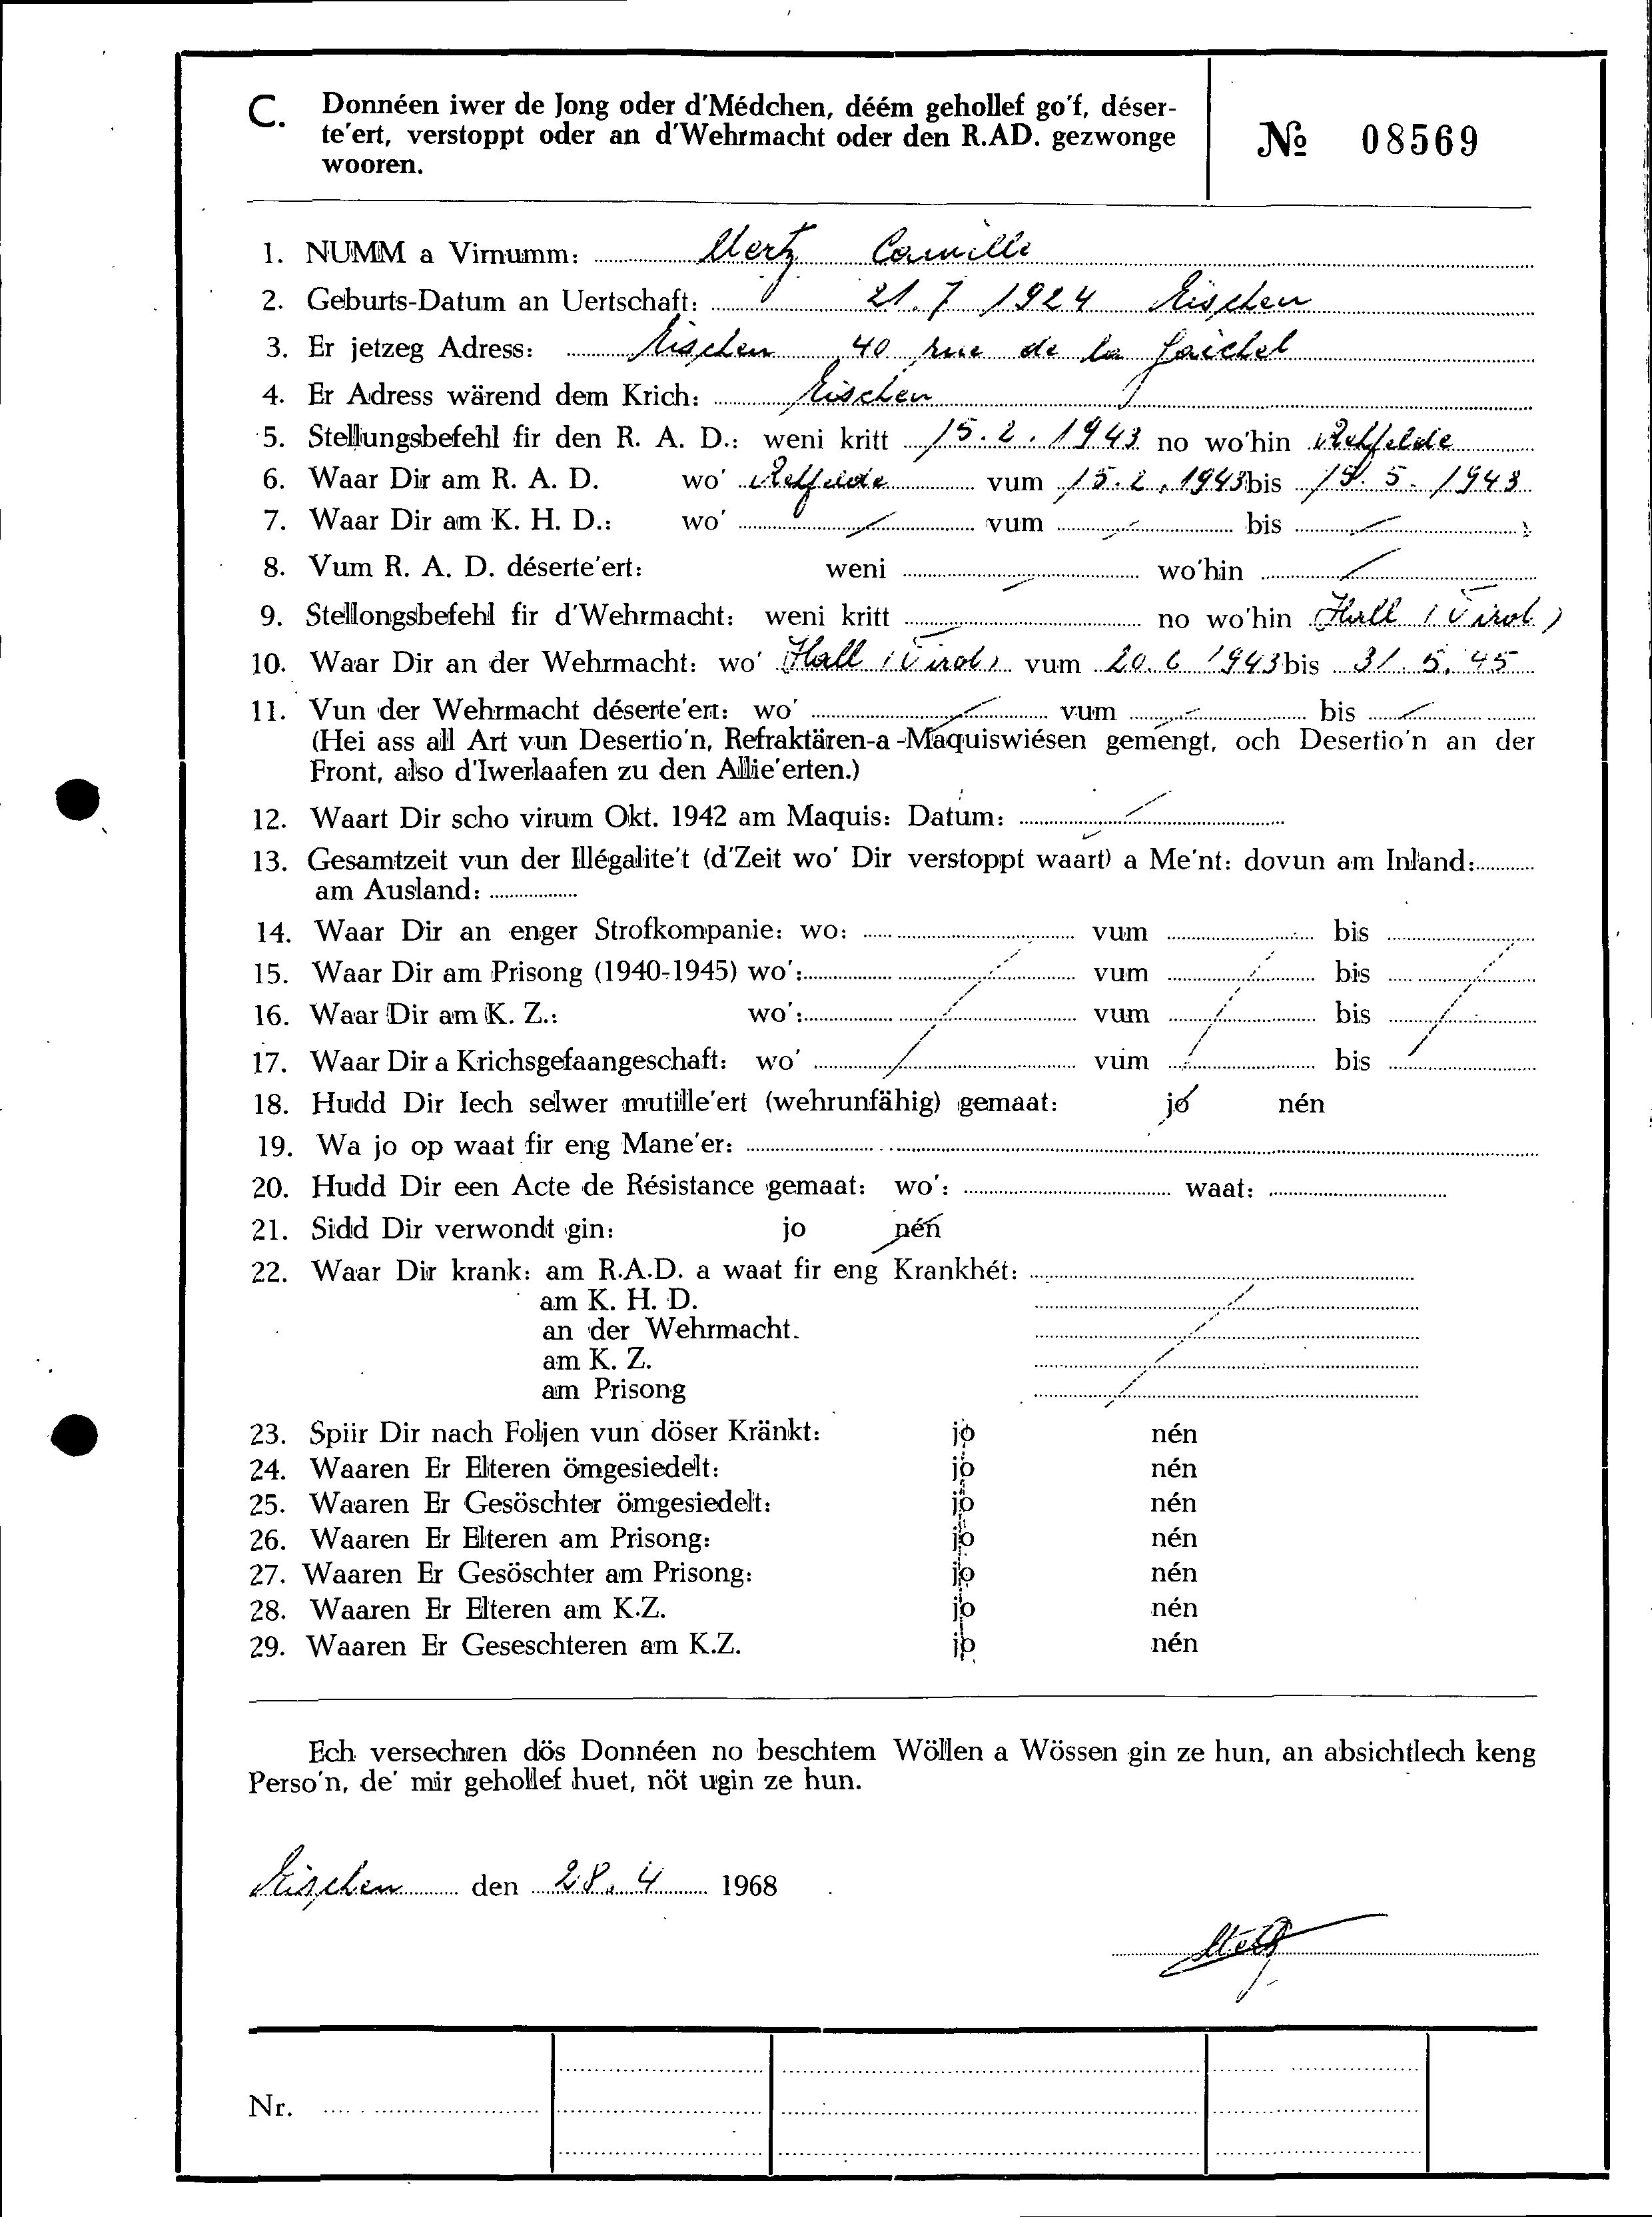 C. Donnéen iwer de Jong oder d'Médchen, déém gehollef go'f, déser-
te'ert, verstoppt oder an d'Wehrmacht oder den R.AD. gezwonge
wooren.
№ 08569
1. NUMM a Virnumm: Mertz Camille
2. Geburts-Datum an Uertschaft: 21.7 1924 Eischen
3. Er jetzeg Adress: Eischen 40 rue de la Gaichel
4. Er Adress wärend dem Krich: Eischen
5. Stellungsbefehl fir den R. A. D.: weni kritt 15.2.1943 no wo'hin Rehfelde
6. Waar Dir am R. A. D. wo' Rehfelde vum 15.2.1943 bis 5. 1943
7. Waar Dir am K. H. D.: wo' vum bis
8. Vum R. A. D. déserte'ert: weni wo'hin
9. Stellongsbefehl fir d'Wehrmacht: weni kritt no wo'hin Hall (Tirol)
10. Waar Dir an der Wehrmacht: wo' Hall (Tirol) vum 20.6 1943 bis 31.5.45
11. Vun der Wehrmacht déserte'ert: wo' vum bis
(Hei ass all Art vun Desertio'n, Refraktären-a-Maquiswiésen gemengt, och Desertio'n an der
Front, also d'Iwerlaafen zu den Allie'erten.)
12. Waart Dir scho virum Okt. 1942 am Maquis: Datum:
13. Gesamtzeit vun der Illégalite't (d'Zeit wo' Dir verstoppt waart) a Me'nt: dovun am Inland:
am Ausland:
14. Waar Dir an enger Strofkompanie: wo: vum bis
15. Waar Dir am Prisong (1940-1945) wo': vum bis
16. Waar Dir am K. Z.: wo': vum bis
17. Waar Dir a Krichsgefaangeschaft: wo' vum bis
18. Hudd Dir Iech selwer mutille'ert (wehrunfähig) gemaat: jo nén
19. Wa jo op waat fir eng Mane'er:
20. Hudd Dir een Acte de Résistance gemaat: wo': waat:
21. Sidd Dir verwondt gin: jo nén
22. Waar Dir krank: am R.A.D. a waat fir eng Krankhét:
am K. H. D.
an der Wehrmacht.
am K. Z.
am Prisong
23. Spiir Dir nach Foljen vun döser Kränkt: jo nén
24. Waaren Er Elteren ömgesiedelt: jo nén
25. Waaren Er Gesöschter ömgesiedelt: jo nén
26. Waaren Er Elteren am Prisong: jo nén
27. Waaren Er Gesöschter am Prisong: jo nén
28. Waaren Er Elteren am K.Z. jo nén
29. Waaren Er Geseschteren am K.Z. jo nén
Ech versechren dös Donnéen no beschtem Wöllen a Wössen gin ze hun, an absichtlech keng
Perso'n, de' mir gehollef huet, nöt ugin ze hun.
Eischen den 28.4 1968
Mertz
Nr.